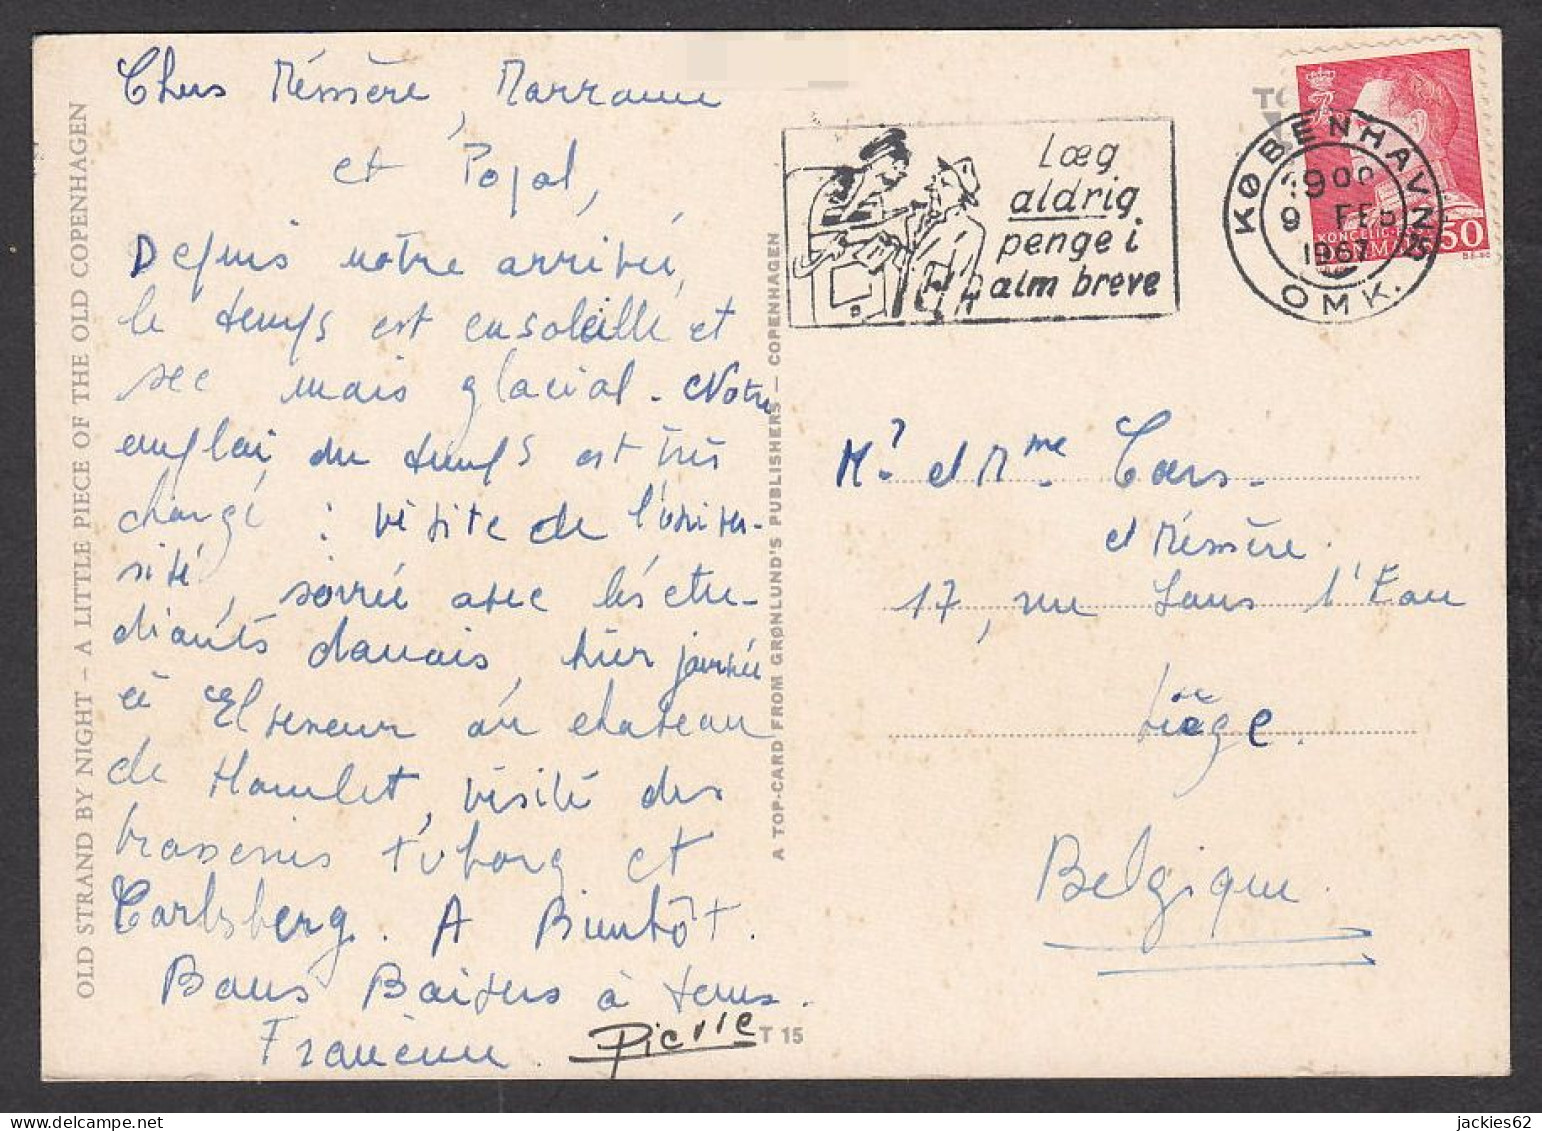 Chers Mémère, Marraine
et Papal,
Depuis notre arrivée,
le temps est ensoleillé et
sec mais glacial. Notre
emploi du temps est très
chargé : visite de l'univer-
sité, soirée avec les étu-
diants danois, hier journée
à Elseneur au chateau
de Hamlet, visite des
brasseries Tuborg et
Carlsberg. A Bientôt.
Bons Baisers à tous.
Francine. Pierre
OLD STRAND BY NIGHT – A LITTLE PIECE OF THE OLD COPENHAGEN
A TOP-CARD FROM GRØNLUND'S PUBLISHERS – COPENHAGEN
T 15
Læg
aldrig
penge i
alm breve
KØBENHAVN
9 FEB
1967
OMK.
50
Mr et Mme Coers.
et Mémère.
17, rue Sous l'Eau
Liège.
Belgique.
jackies62